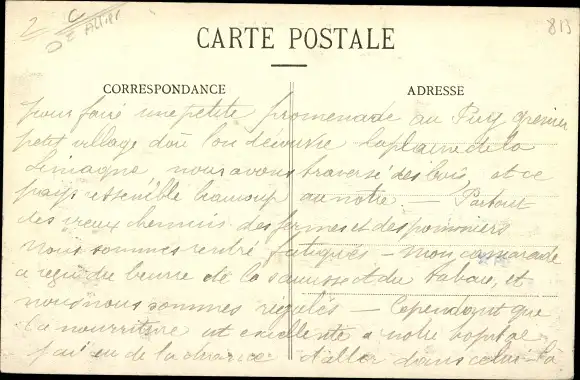 2 C
Dt Allier
813
CARTE POSTALE
CORRESPONDANCE
ADRESSE
pour faire une petite promenade au Puy grenier
petit village d'où l'on découvre la plaine de la
Limagne, nous avons traversé des bois, et ce
pays ressemble beaucoup au notre. — Partout
des vieux chemins des fermes et des pommiers
Nous sommes rentré fatigués — mon camarade
a reçu du beurre de la saucisse et du tabac, et
nous nous sommes régalés — Cependant que
la nourriture est excellente a notre hopital
j'ai eu de la chance d'aller dans celui-là